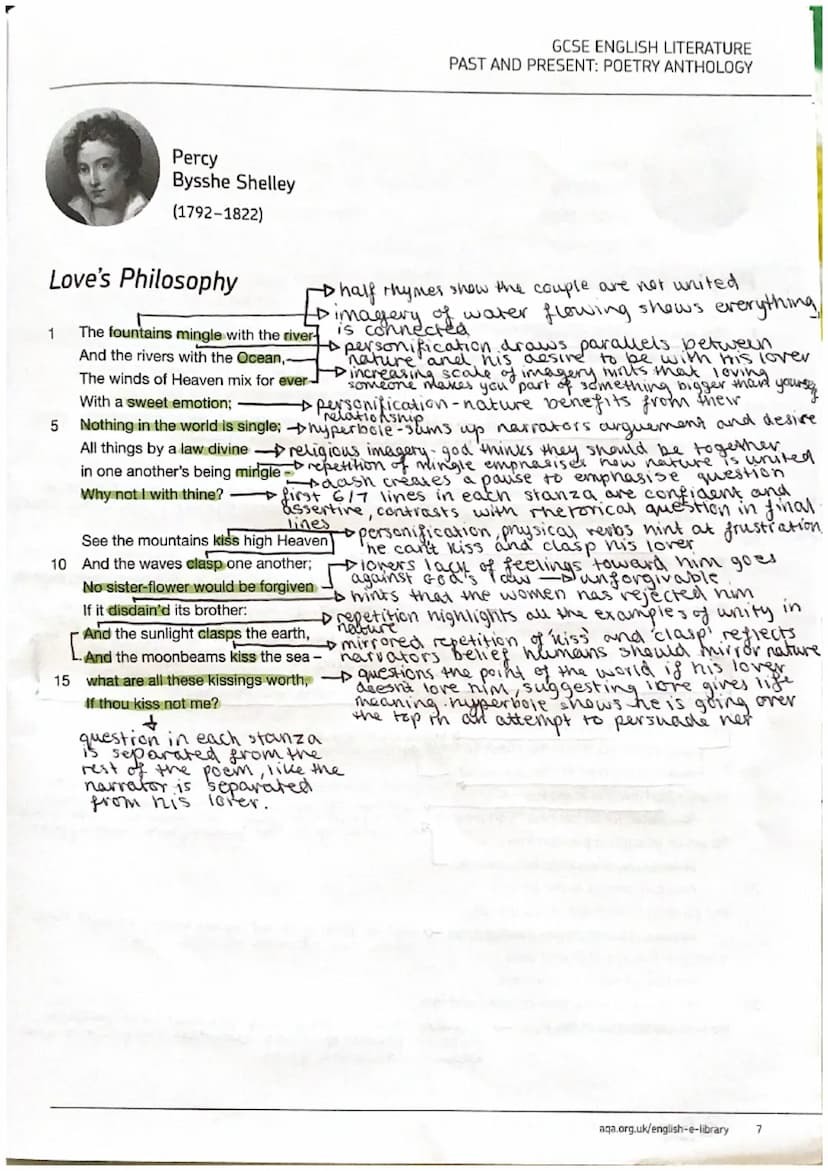 GCSE ENGLISH LITERATURE
PAST AND PRESENT: POETRY ANTHOLOGY
Percy
Bysshe Shelley
(1792–1822)
Love's Philosophy
half rhymes show the couple are not united
imagery of water flowing shows everything
is connected
1 The fountains mingle with the river
personification draws parallels between
And the rivers with the Ocean,
nature and his desire to be with his lover
The winds of Heaven mix for ever
increasing scale of imagery hints that loving
someone makes you part of something bigger than yourself
With a sweet emotion;
personification - nature benefits from their
relationship
5 Nothing in the world is single;
hyperbole - sums up narrators arguement and desire
All things by a law divine
religious imagery - god thinks they should be together
in one another's being mingle –
repetition of mingle emphasises how nature is united
dash creates a pause to emphasise question
Why not I with thine?
first 6/7 lines in each stanza are confident and
assertive, contrasts with rhetorical question in final
lines
See the mountains kiss high Heaven
personification, physical verbs hint at frustration
he can't kiss and clasp his lover
10 And the waves clasp one another;
lovers lack of feelings toward him goes
against God's law → unforgivable
No sister-flower would be forgiven
hints that the women has rejected him
If it disdain'd its brother:
repetition highlights all the examples of unity in
nature
And the sunlight clasps the earth,
mirrored repetition of 'kiss' and 'clasp' reflects
And the moonbeams kiss the sea –
narrators belief humans should mirror nature
15 what are all these kissings worth,
questions the point of the world if his lover
doesn't love him, suggesting love gives life
If thou kiss not me?
meaning. hyperbole shows he is going over
the top in an attempt to persuade her
question in each stanza
is separated from the
rest of the poem, like the
narrator is separated
from his lover.
aqa.org.uk/english-e-library 7